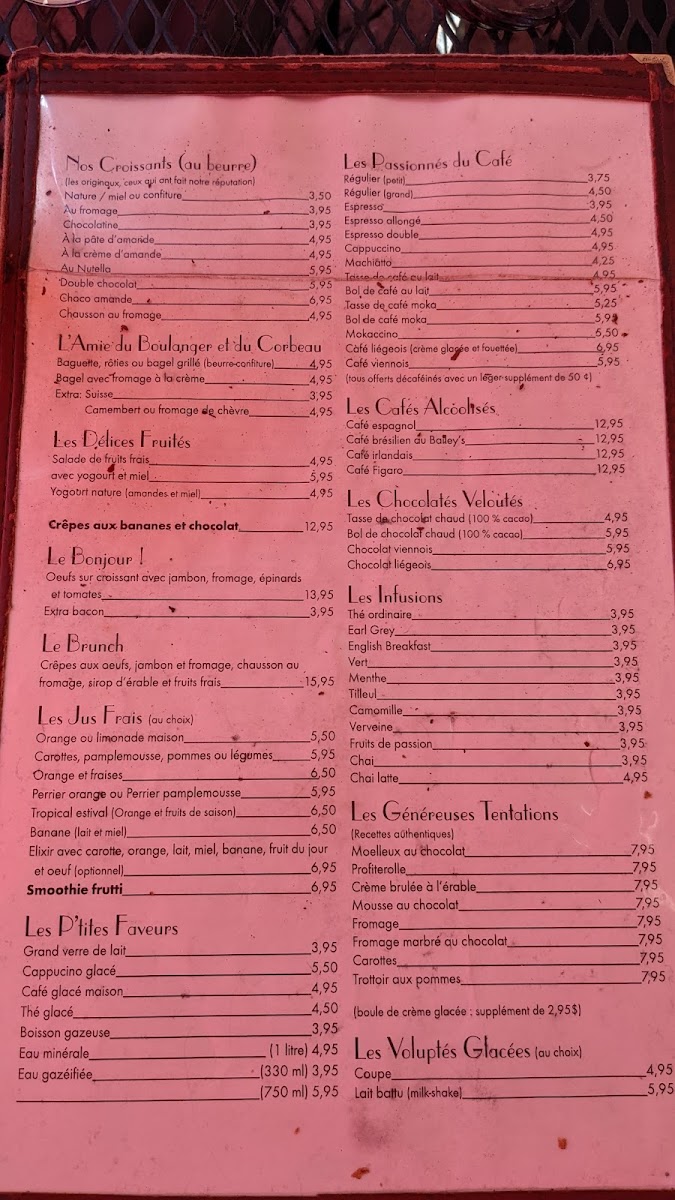 Nos Croissants (au beurre)
(les originaux, ceux qui ont fait notre réputation)
Nature / miel ou confiture 3,50
Au fromage 3,95
Chocolatine 3,95
À la pâte d'amande 4,95
À la crème d'amande 4,95
Au Nutella 5,95
Double chocolat 5,95
Choco amande 6,95
Chausson au fromage 4,95
L'Amie du Boulanger et du Corbeau
Baguette, rôties ou bagel grillé (beurre-confiture) 4,95
Bagel avec fromage à la crème 4,95
Extra: Suisse 3,95
Camembert ou fromage de chèvre 4,95
Les Délices Fruités
Salade de fruits frais 4,95
avec yogourt et miel 5,95
Yogourt nature (amandes et miel) 4,95
Crêpes aux bananes et chocolat 12,95
Le Bonjour !
Oeufs sur croissant avec jambon, fromage, épinards
et tomates 13,95
Extra bacon 3,95
Le Brunch
Crêpes aux oeufs, jambon et fromage, chausson au
fromage, sirop d'érable et fruits frais 15,95
Les Jus Frais (au choix)
Orange ou limonade maison 5,50
Carottes, pamplemousse, pommes ou légumes 5,95
Orange et fraises 6,50
Perrier orange ou Perrier pamplemousse 5,95
Tropical estival (Orange et fruits de saison) 6,50
Banane (lait et miel) 6,50
Elixir avec carotte, orange, lait, miel, banane, fruit du jour
et oeuf (optionnel) 6,95
Smoothie frutti 6,95
Les P'tites Faveurs
Grand verre de lait 3,95
Cappucino glacé 5,50
Café glacé maison 4,95
Thé glacé 4,50
Boisson gazeuse 3,95
Eau minérale (1 litre) 4,95
Eau gazéifiée (330 ml) 3,95
(750 ml) 5,95
Les Passionnés du Café
Régulier (petit) 3,75
Régulier (grand) 4,50
Espresso 3,95
Espresso allongé 4,50
Espresso double 4,95
Cappuccino 4,95
Machiatto 4,25
Tasse de café au lait 4,95
Bol de café au lait 5,95
Tasse de café moka 5,25
Bol de café moka 5,95
Mokaccino 6,50
Café liégeois (crème glacée et fouettée) 6,95
Café viennois 5,95
(tous offerts décaféinés avec un léger supplément de 50 ¢)
Les Cafés Alcoolisés
Café espagnol 12,95
Café brésilien au Bailey's 12,95
Café irlandais 12,95
Café Figaro 12,95
Les Chocolatés Veloutés
Tasse de chocolat chaud (100 % cacao) 4,95
Bol de chocolat chaud (100 % cacao) 5,95
Chocolat viennois 5,95
Chocolat liégeois 6,95
Les Infusions
Thé ordinaire 3,95
Earl Grey 3,95
English Breakfast 3,95
Vert 3,95
Menthe 3,95
Tilleul 3,95
Camomille 3,95
Verveine 3,95
Fruits de passion 3,95
Chai 3,95
Chai latte 4,95
Les Généreuses Tentations
(Recettes authentiques)
Moelleux au chocolat 7,95
Profiterolle 7,95
Crème brulée à l'érable 7,95
Mousse au chocolat 7,95
Fromage 7,95
Fromage marbré au chocolat 7,95
Carottes 7,95
Trottoir aux pommes 7,95
(boule de crème glacée : supplément de 2,95$)
Les Voluptés Glacées (au choix)
Coupe 4,95
Lait battu (milk-shake) 5,95